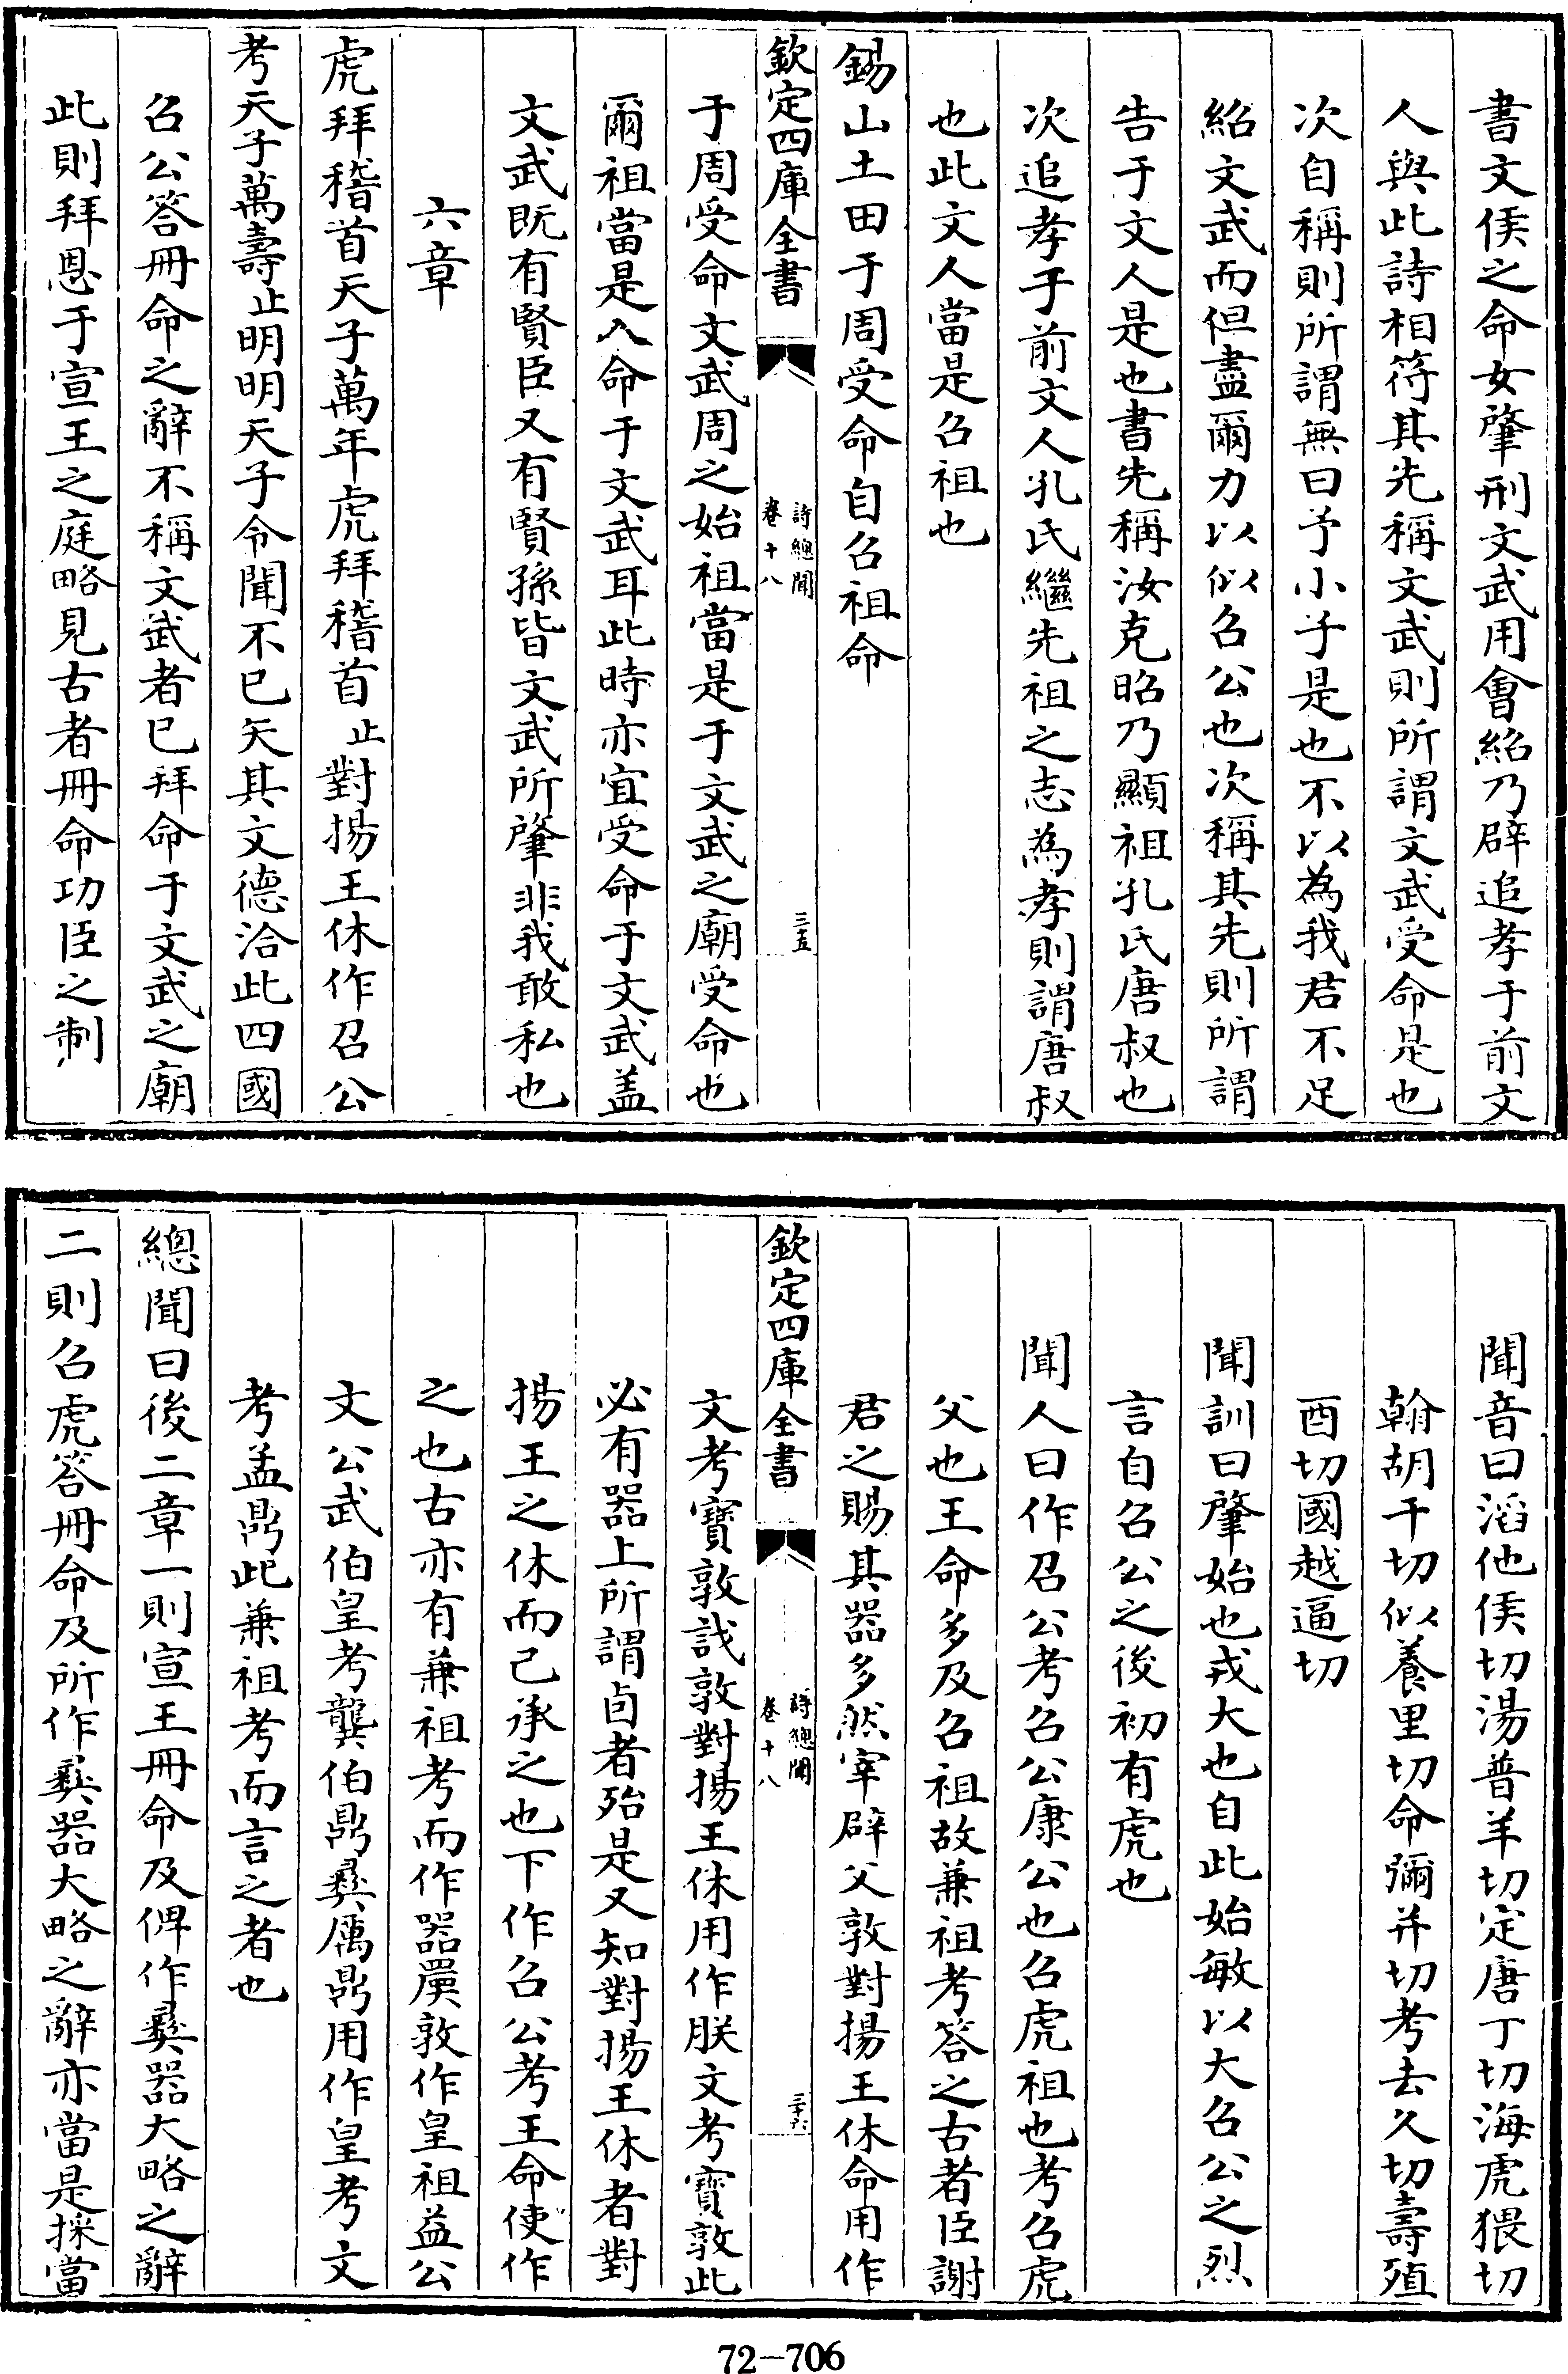 書文侯之命女肇刑文武用㑹紹乃辟追孝于前文
人與此詩相符其先稱文武則所謂文武受命是也
次自稱則所謂無曰予小子是也不以為我君不足
紹文武而但盡爾力以似召公也次稱其先則所謂
告于文人是也書先稱汝克昭乃顯祖孔氏唐叔也
次追孝于前文人孔氏繼先祖之志為孝則謂唐叔
也此文人當是召祖也
錫山土田于周受命自召祖命
欽定四庫全書
詩總聞
卷十八
三五
于周受命文武周之始祖當是于文武之廟受命也
爾祖當是入命于文武耳此時亦宜受命于文武盖
文武既有賢臣又有賢孫皆文武所肇非我敢私也
六章
虎拜稽首天子萬年虎拜稽首止對揚王休作召公
考天子萬壽止明明天子令聞不已矢其文德洽此四國
召公答冊命之辭不稱文武者已拜命于文武之廟
此則拜恩于宣王之庭略見古者冊命功臣之制
聞音曰滔他侯切湯普羊切定唐丁切海虎猥切
翰胡干切似養里切命彌并切考去久切壽殖
酉切國越逼切
聞訓曰肇始也戎大也自此始敏以大召公之烈
言自召公之後初有虎也
聞人曰作召公考召公康公也召虎祖也考召虎
父也王命多及召祖故兼祖考答之古者臣謝
君之賜其器多然宰辟父敦對揚王休命用作
欽定四庫全書
詩總聞
卷十八
三十六
文考寶敦㦲敦對揚王休用作朕文考寶敦此
必有器上所謂卣者殆是又知對揚王休者對
揚王之休而己承之也下作召公考王命使作
之也古亦有兼祖考而作器㝨敦作皇祖益公
文公武伯皇考龔伯鼎彝厲鼎用作皇考文
考孟鼎此兼祖考而言之者也
總聞曰後二章一則宣王冊命及俾作彝器大略之辭
二則召虎答冊命及所作彝器大略之辭亦當是採當
72-706